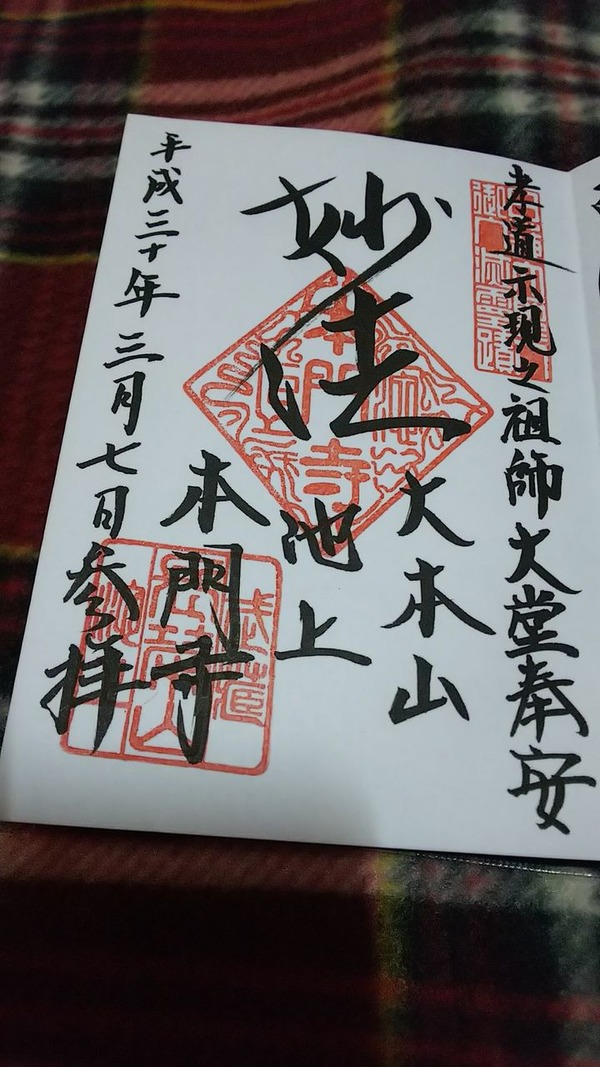 孝道示現之祖師大堂奉安
妙法
大本山
池上
本門寺
平成三十年三月七日参拝